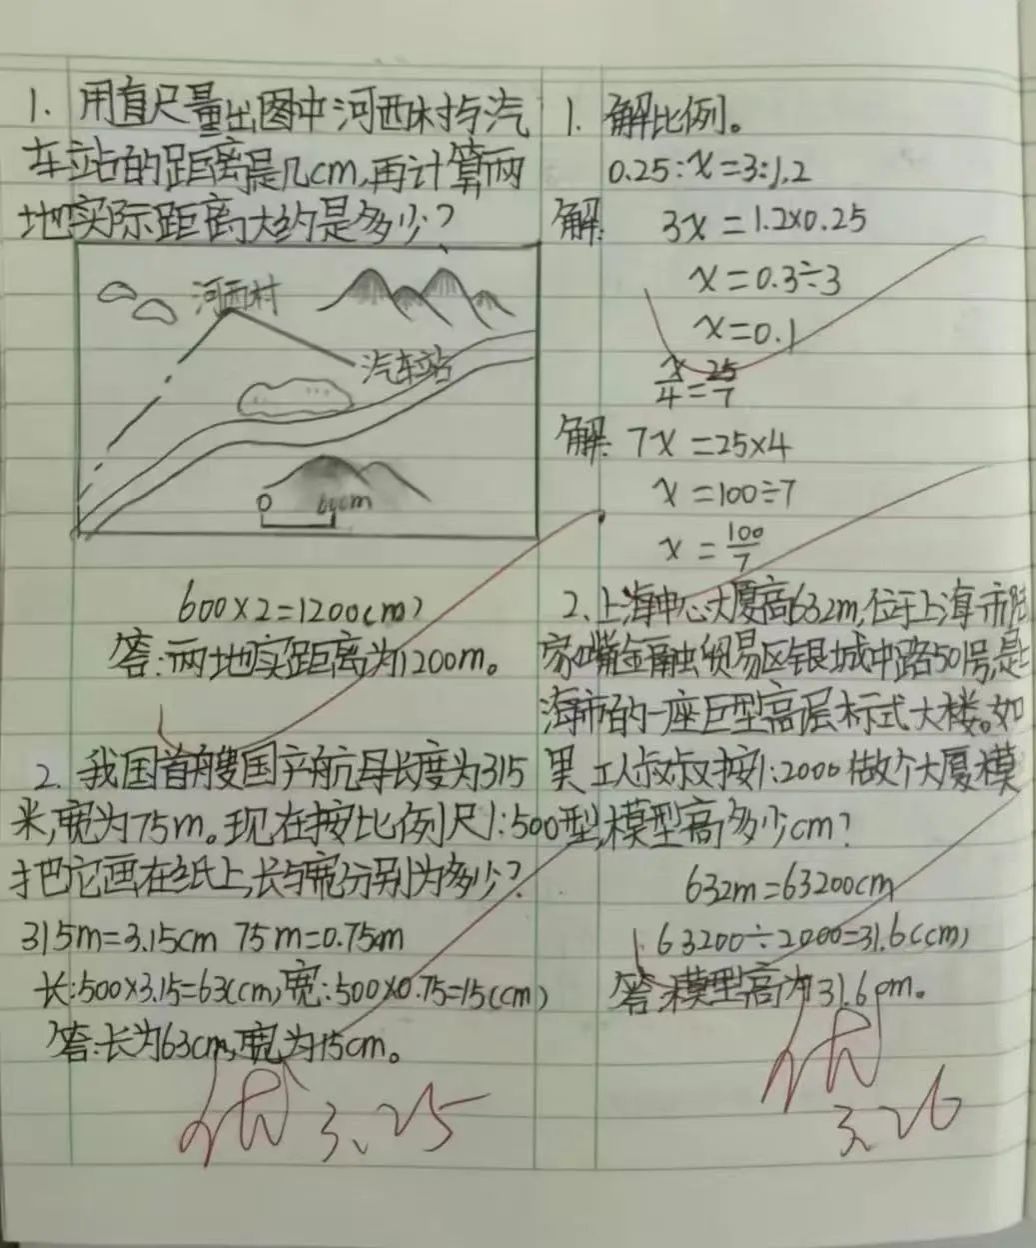 1. 用直尺量出图中河西村与汽
车站的距离是几cm,再计算两
地实际距离大约是多少?
河西村
汽车站
0 600m
600×2=1200(m)
答:两地实距离为1200m。
2. 我国首艘国产航母长度为315
米,宽为75m。现在按比例尺1:500
把它画在纸上,长与宽分别为多少?
315m=3.15cm 75m=0.75cm
长:500×3.15=63(cm)宽:500×0.75=15(cm)
答:长为63cm,宽为15cm。
优 3.25
1. 解比例。
0.25:x=3:1.2
解: 3x=1.2×0.25
x=0.3÷3
x=0.1
x/4=25/7
解: 7x=25×4
x=100÷7
x=100/7
2.上海中心大厦高632m,位于上海市陆
家嘴金融贸易区银城中路501号,是上
海市的一座巨型高层标式大楼。如
果工人叔叔按1:2000做个大厦模
型,模型高多少cm?
632m=63200cm
63200÷2000=31.6(cm)
答:模型高为31.6cm。
优
3.26